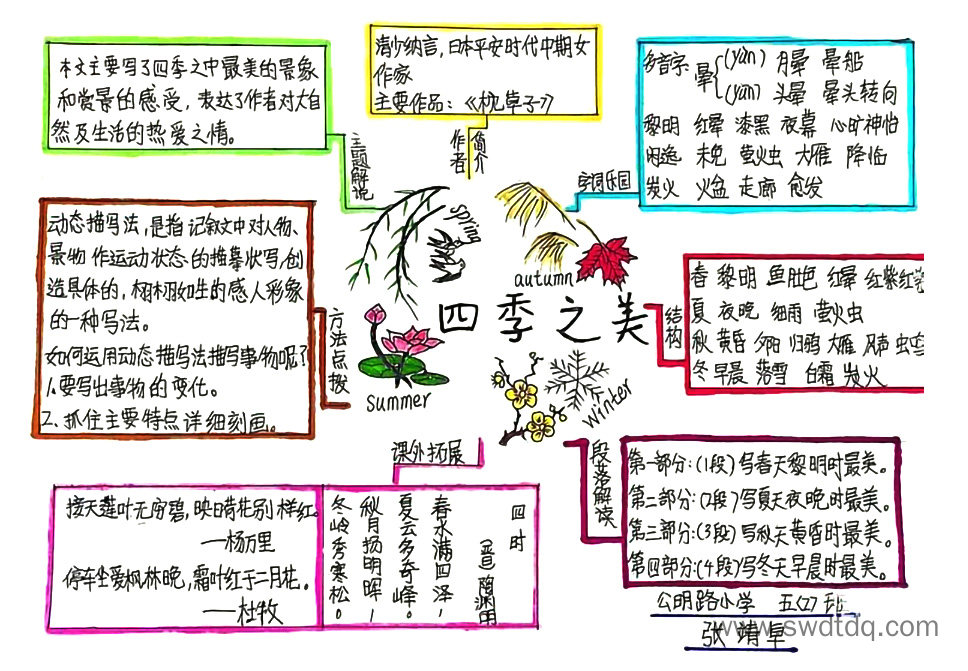 本文主要写了四季之中最美的景象
和赏景的感受，表达了作者对大自
然及生活的热爱之情。
主题解说
清少纳言，日本平安时代中期女
作家
主要作品：《枕草子》
作者
简介
多音字：晕
(yùn) 月晕 晕船
(yūn) 头晕 晕头转向
黎明 红晕 漆黑 夜幕 心旷神怡
闲逸 未免 萤火虫 大雁 降临
炭火 火盆 走廊 愈发
字词乐园
动态描写法，是指记叙文中对人物、
景物作运动状态的描摹状写，创
造具体的，栩栩如生的感人形象
的一种写法。
如何运用动态描写法描写事物呢？
1.要写出事物的变化。
2.抓住主要特点详细刻画。
方法点拨
spring
autumn
四季之美
summer
winter
结构
春 黎明 鱼肚色 红晕 红紫红
夏 夜晚 细雨 萤火虫
秋 黄昏 夕阳 归鸦 大雁 风声 虫
冬 早晨 落雪 白霜 炭火
课外拓展
接天莲叶无穷碧，映日荷花别样红。
——杨万里
停车坐爱枫林晚，霜叶红于二月花。
——杜牧
四时
(晋) 陶渊明
春水满四泽，
夏云多奇峰。
秋月扬明晖，
冬岭秀寒松。
段落解读
第一部分：(1段)写春天黎明时最美。
第二部分：(2段)写夏天夜晚时最美。
第三部分：(3段)写秋天黄昏时最美。
第四部分：(4段)写冬天早晨时最美。
公明路小学 五(7)班
张靖卓
www.swdtdq.com